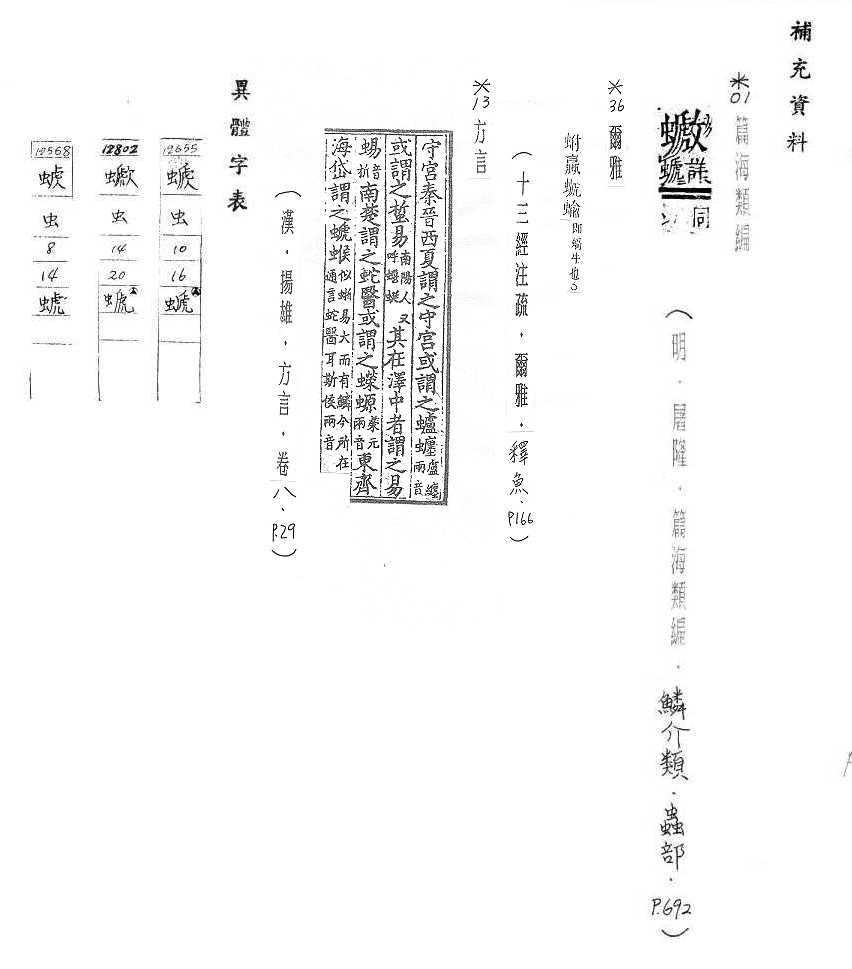 補充資料
*01 篇海類編
同
(明.屠隆.篇海類編.鱗介類.蟲部.P.692)
*36 爾雅
蚹蠃螔蝓即蝸牛也
(十三經注疏.爾雅.釋魚.P166)
*13 方言
守宮秦晉西夏謂之守宮或謂之蠦𧓋盧纏兩音
或謂之蜤易南陽人又呼蝘蜓其在澤中者謂之易
蜴音析南楚謂之蛇醫或謂之蠑螈榮元兩音東齊
海岱謂之螔𧋎似蜥易大而有鱗今所在通言蛇醫耳斯侯兩音
(漢.揚雄.方言.卷八.P.29)
異體字表
12655
虫
10
16
螔
12802
虫
14
20
12568
虫
8
14